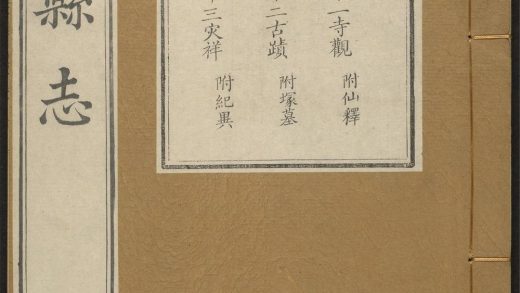 一寺觀 附仙釋
二古蹟 附塚墓
十三灾祥 附紀異
縣志